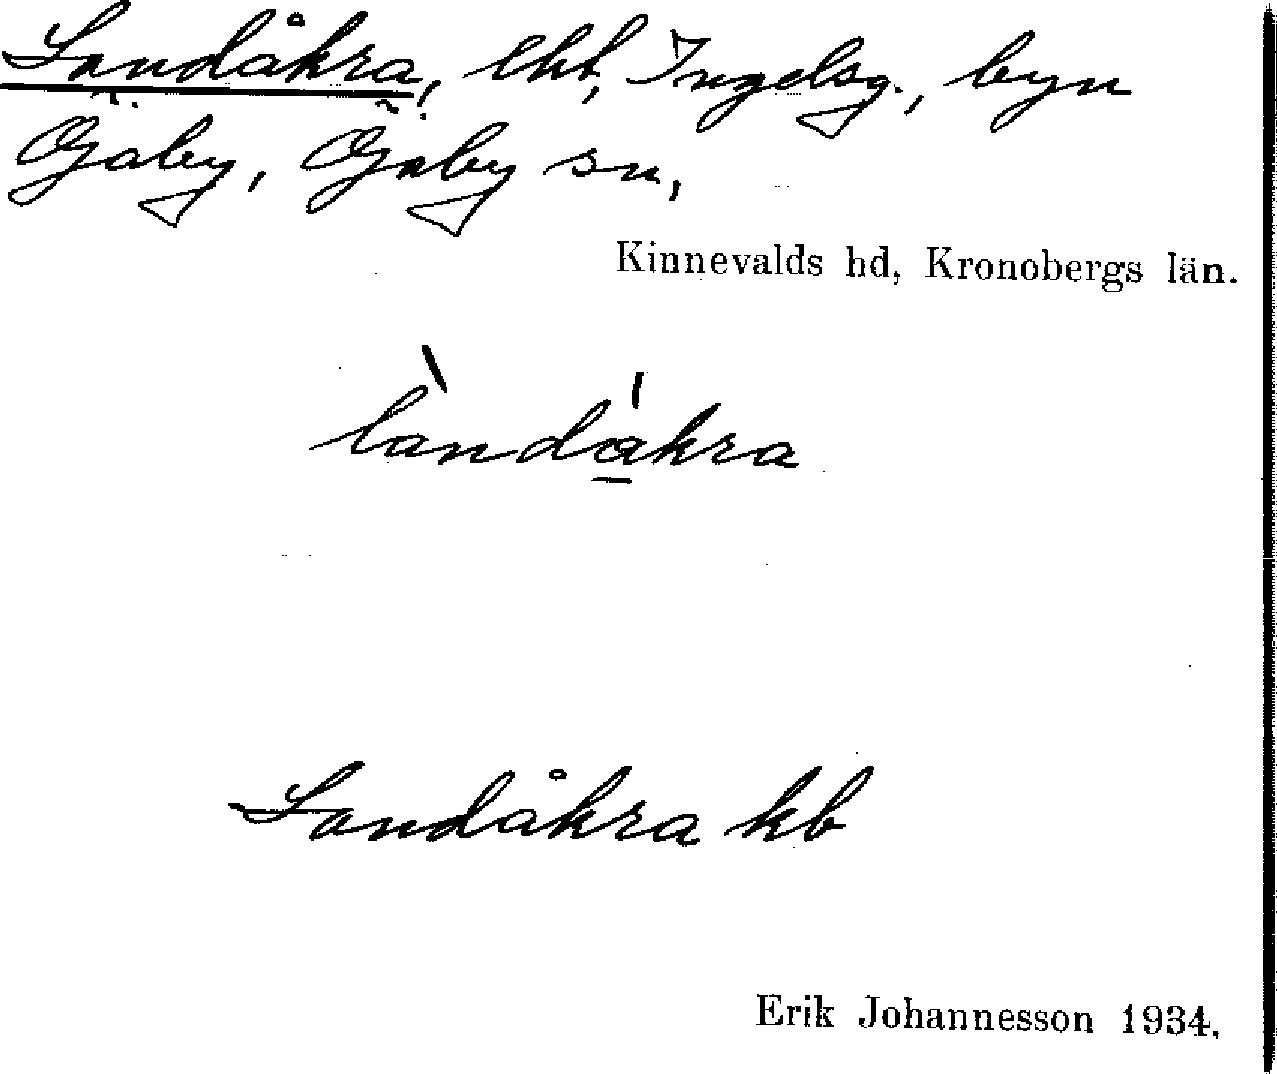 Landåkra, lht, Ingelsg., byn
Öjaby, Öjaby sn,
Kinnevalds hd, Kronobergs län.
làndákra
Landåkra kb
Erik Johannesson 1934.